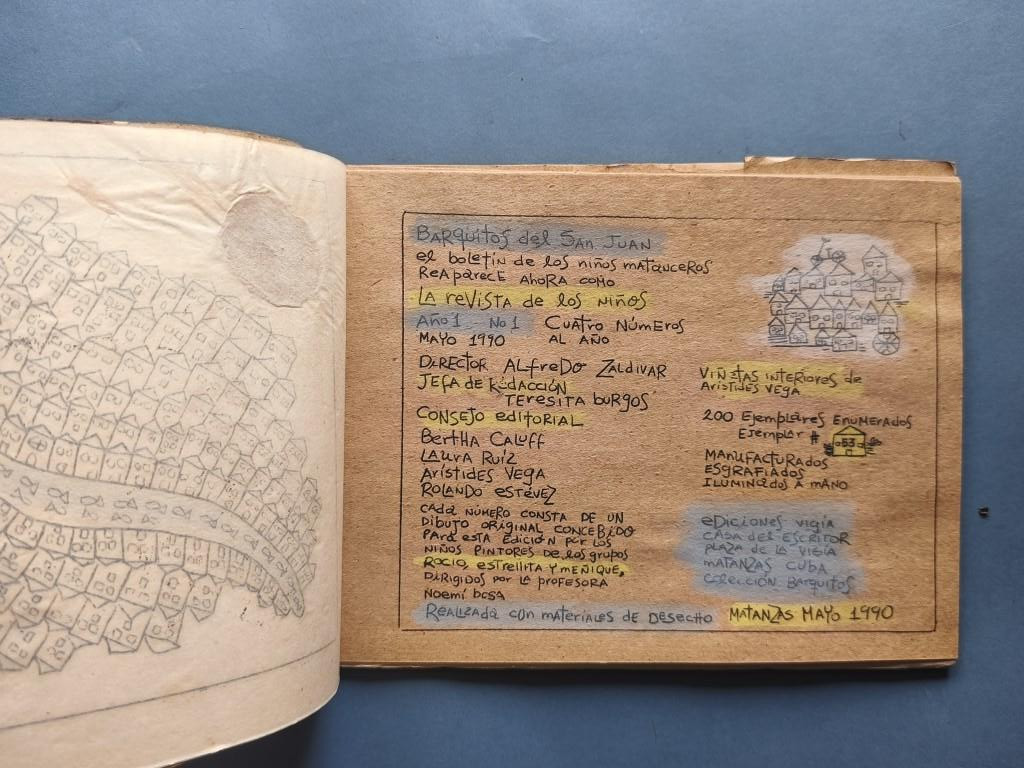 BARquitos del San Juan
el boletín de los niños matanceros
ReAparece Ahora como
La reVista de los niños
Año 1 No 1 Cuatro Números
Mayo 1990 al año
Director Alfredo Zaldivar
Jefa de Redacción
Teresita burgos
Consejo editorial
Bertha Caluff
Laura Ruíz
Arístides Vega
Rolando estévez
cada número consta de un
dibujo original concebido
para esta edición por los
niños pintores de los grupos
Rocío, estrellita y meñique,
dirigidos por la profesora
Noemí bosa
Realizada con materiales de desecho
Viñetas interiores de
Arístides Vega
200 Ejemplares enumerados
Ejemplar # 53
Manufacturados
esgrafiados
iluminados a mano
ediciones vigía
casa del escritor
plaza de la vigía
matanzas cuba
colección barquitos
Matanzas Mayo 1990